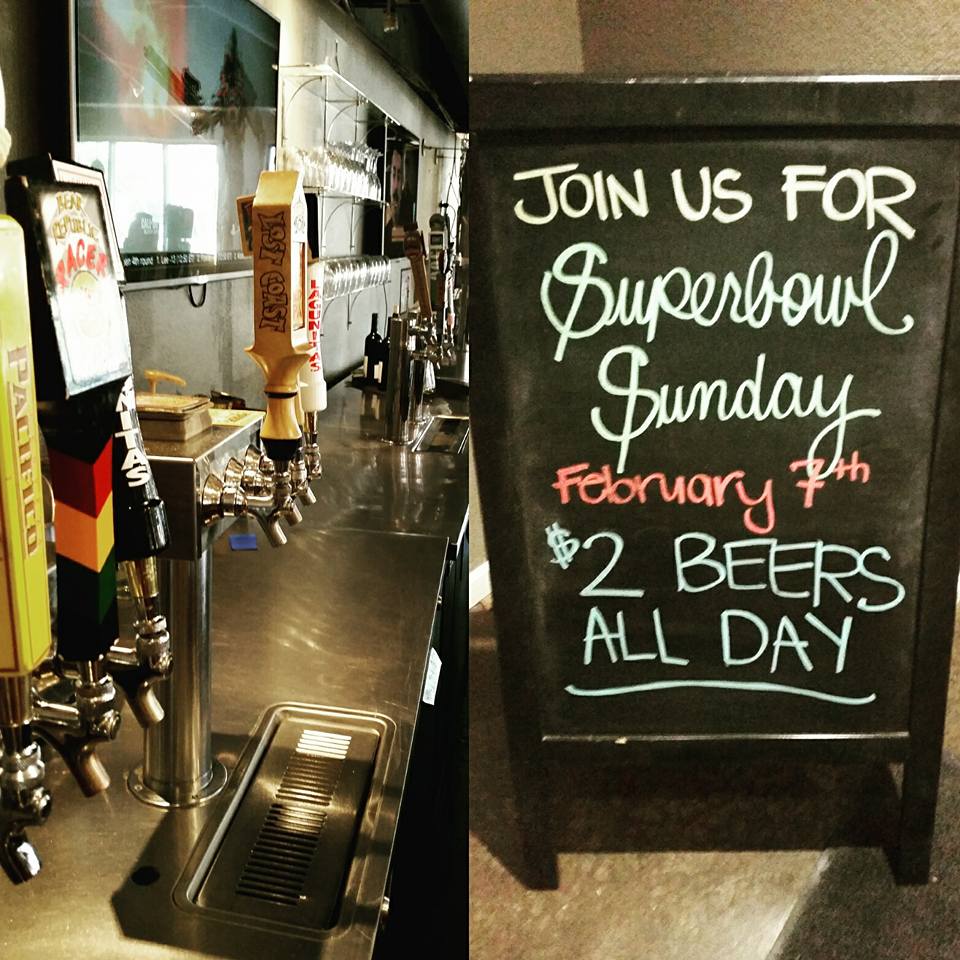 BEAR
REPUBLIC
RACER
PACIFICO
NITAS
LOST COAST
LAGUNITAS
JOIN US FOR
Superbowl
Sunday
February 7th
$2 BEERS
ALL DAY